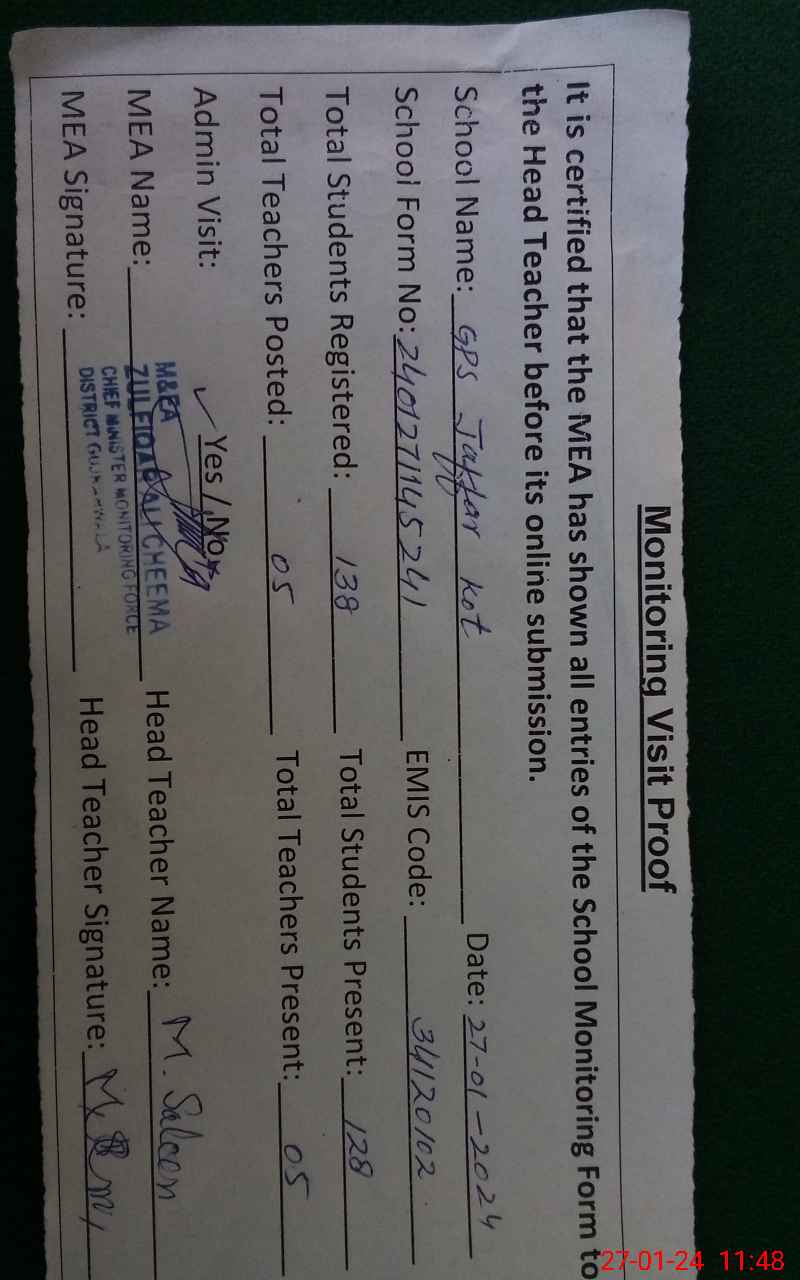 Monitoring Visit Proof
It is certified that the MEA has shown all entries of the School Monitoring Form to
the Head Teacher before its online submission.
School Name: GPS Jaffar Kot Date: 27-01-2024
School Form No: 2401271145241 EMIS Code: 34120102
Total Students Registered: 138 Total Students Present: 128
Total Teachers Posted: 05 Total Teachers Present: 05
Admin Visit: ✓ Yes / No
MEA Name: Head Teacher Name: M. Saleem
M&EA
ZULFIQAR ALI CHEEMA
CHIEF MINISTER MONITORING FORCE
DISTRICT GUJRANWALA
MEA Signature: Head Teacher Signature:
27-01-24 11:48